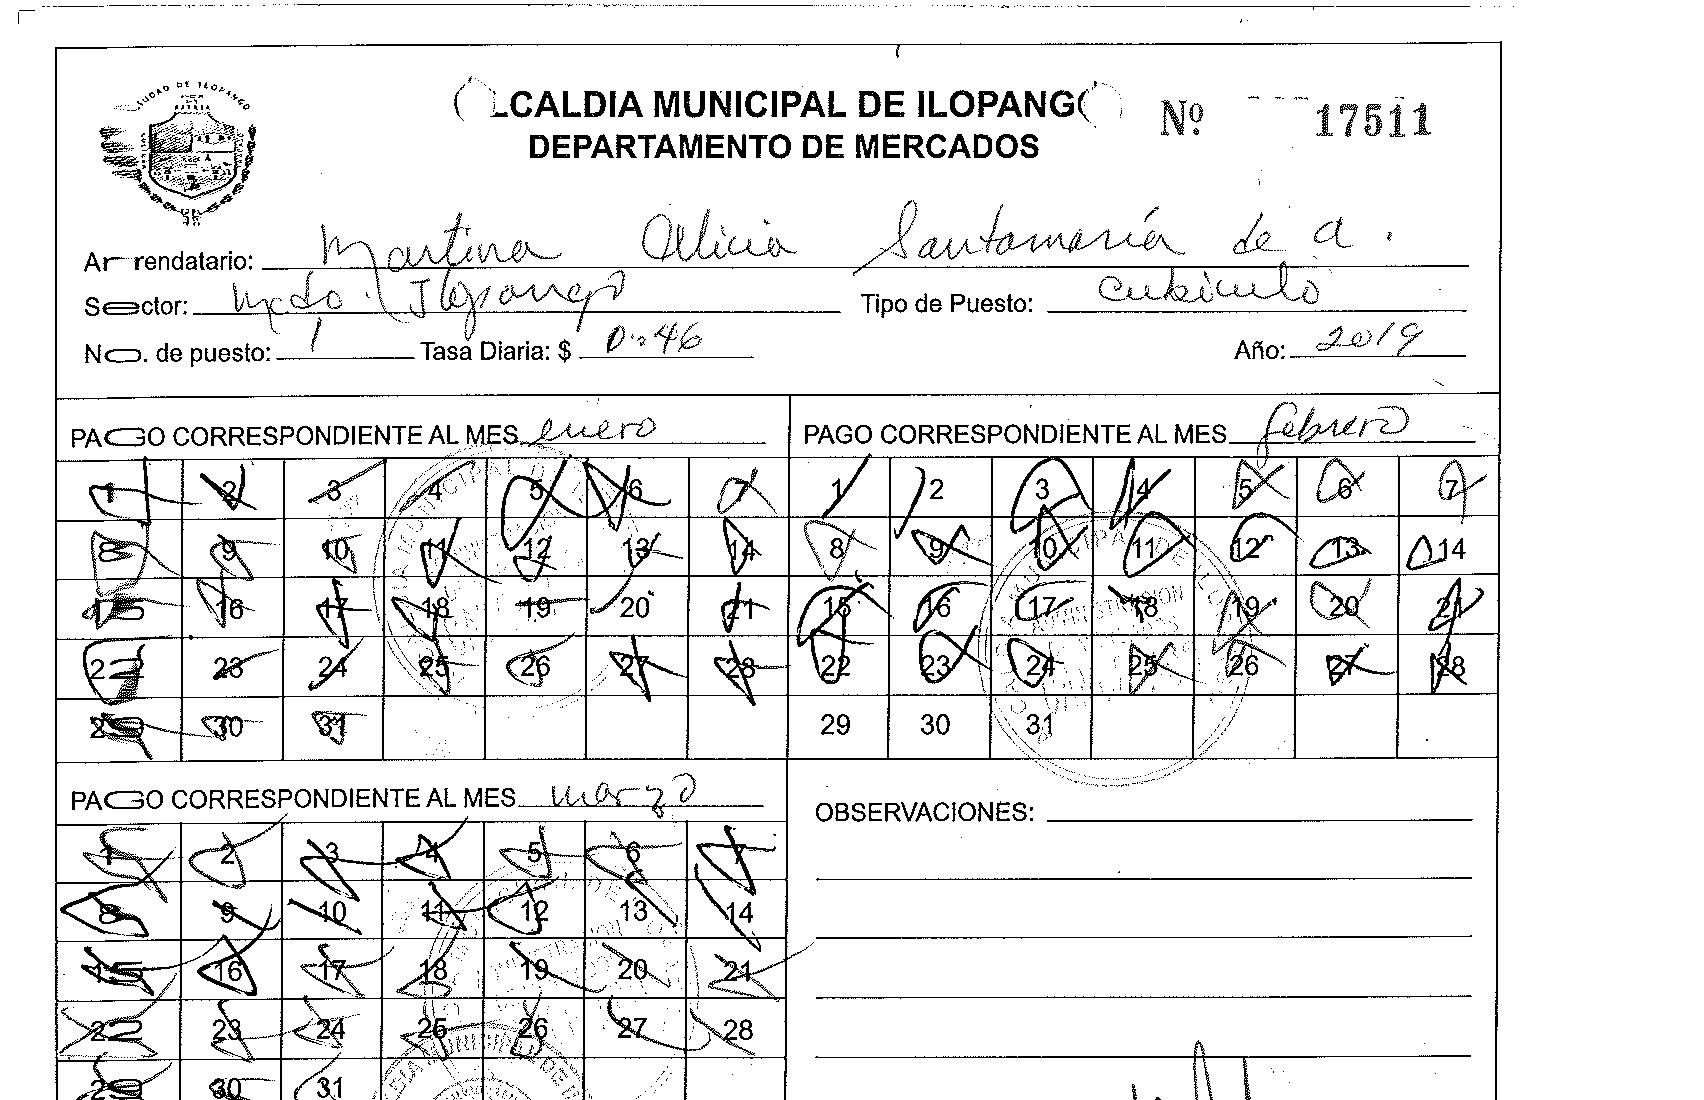 CIUDAD DE ILOPANGO
PATRIA
LCALDIA MUNICIPAL DE ILOPANG
Nº 17511
DEPARTAMENTO DE MERCADOS
Arrendatario: Martina Alicia Santamaría de A.
Sector: Mcdo. Ilopango Tipo de Puesto: Cubiculo
No. de puesto: 1 Tasa Diaria: $ 0.46 Año: 2019
PAGO CORRESPONDIENTE AL MES enero
1 2 3 4 5 6 7
8 9 10 11 12 13 14
15 16 17 18 19 20 21
22 23 24 25 26 27 28
29 30 31
PAGO CORRESPONDIENTE AL MES febrero
1 2 3 4 5 6 7
8 9 10 11 12 13 14
15 16 17 18 19 20 21
22 23 24 25 26 27 28
29 30 31
PAGO CORRESPONDIENTE AL MES marzo
1 2 3 4 5 6 7
8 9 10 11 12 13 14
15 16 17 18 19 20 21
22 23 24 25 26 27 28
29 30 31
OBSERVACIONES: